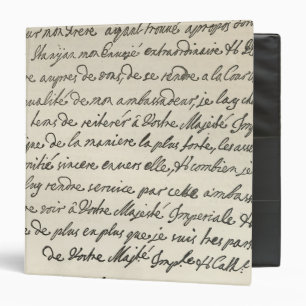 ur mon Frere ayant trouvé apropos d'on
Stanyan mon Envoyé extraordinaire &c
re aupres de vous, de se rendre a la Cour
ualité de mon ambassadeur, je luy
dens de reiterer à Vostre Majesté Imp
que de la maniere la plus forte, les asse
mitié sincere envers elle, & combien je
luy rendre service par cette ambass
re voir à Vostre Majesté Imperiale &
de plus en plus que je suis tres par
de Vostre Majté Imple & Cathe